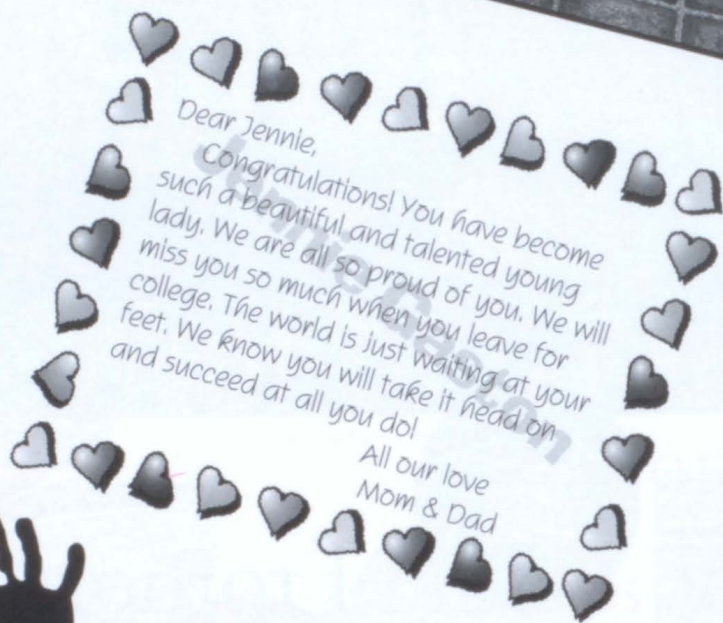 Dear Jennie,
Congratulations! You have become
such a beautiful and talented young
lady. We are all so proud of you. We will
miss you so much when you leave for
college. The world is just waiting at your
feet. We know you will take it head on
and succeed at all you do!
All our love
Mom & Dad
Jennie Gaston